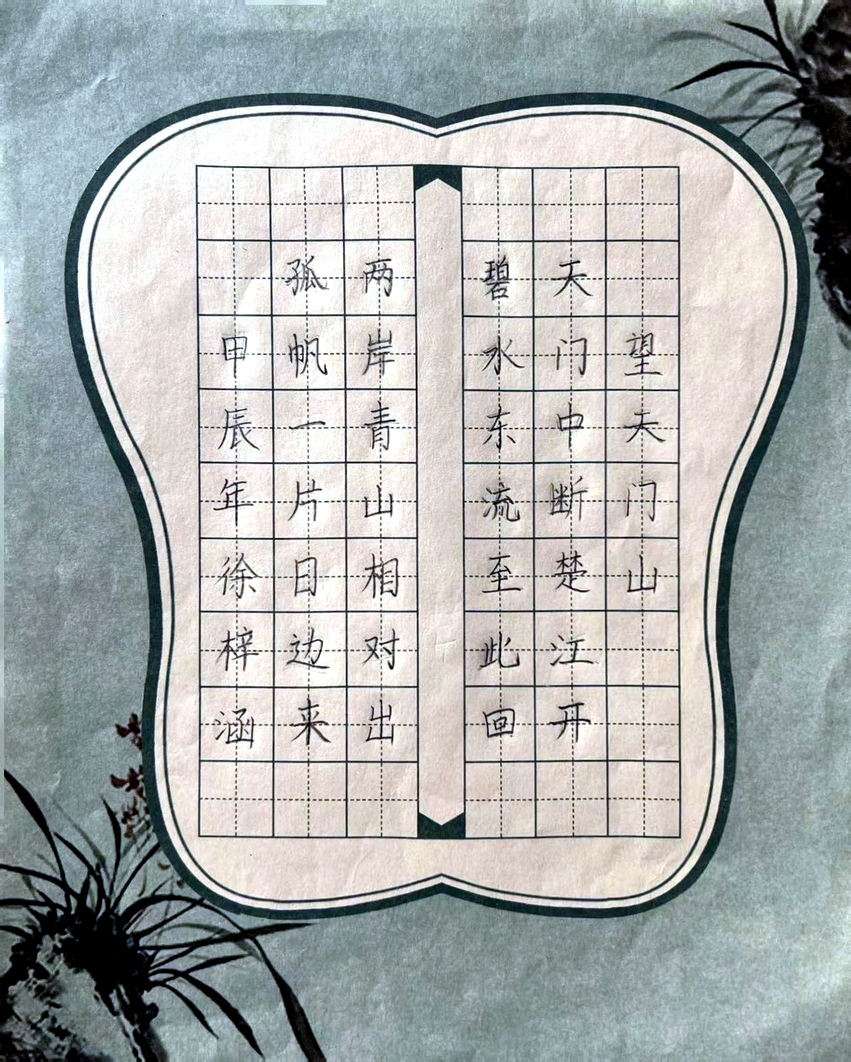 望天门山
天门中断楚江开
碧水东流至此回
两岸青山相对出
孤帆一片日边来
甲辰年徐梓涵